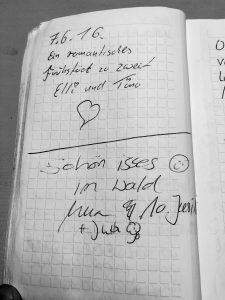 7.6.16.
Ein romantisches
Frühstück zu zweit
Elli und Tino
schön isses
im Wald
10. Juni
+ Jule